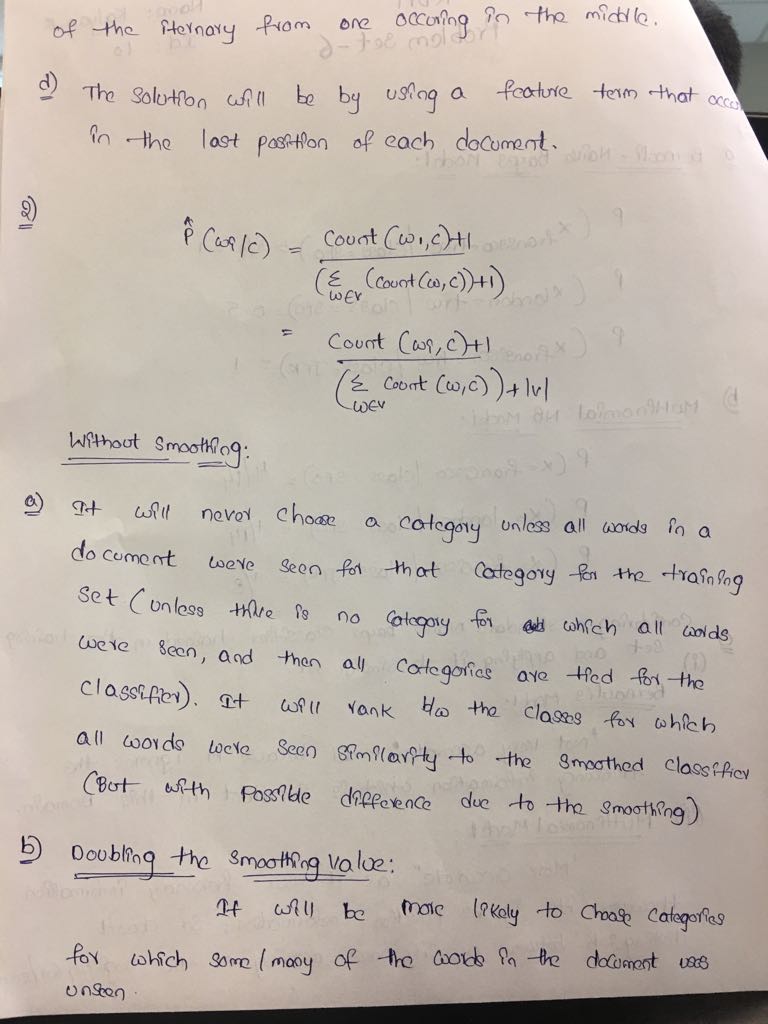 of the iternary from one occuring in the middle.
d) The solution will be by using a feature term that occu
in the last position of each document.
2)
P̂ (wi/c) = Count (wi,c)+1 / (Σ w∈v (count(w,c))+1)
= Count (wi,c)+1 / (Σ w∈v Count (w,c))+|v|
Without Smoothing:
a) It will never choose a category unless all words in a
document were seen for that category for the training
set (unless there is no category for which all words
were seen, and then all categories are tied for the
classifier). It will rank b/w the classes for which
all words were seen similarity to the smoothed classifier
(But with possible difference due to the smoothing)
b) Doubling the smoothing value:
It will be more likely to choose categories
for which some/many of the words in the document was
unseen.